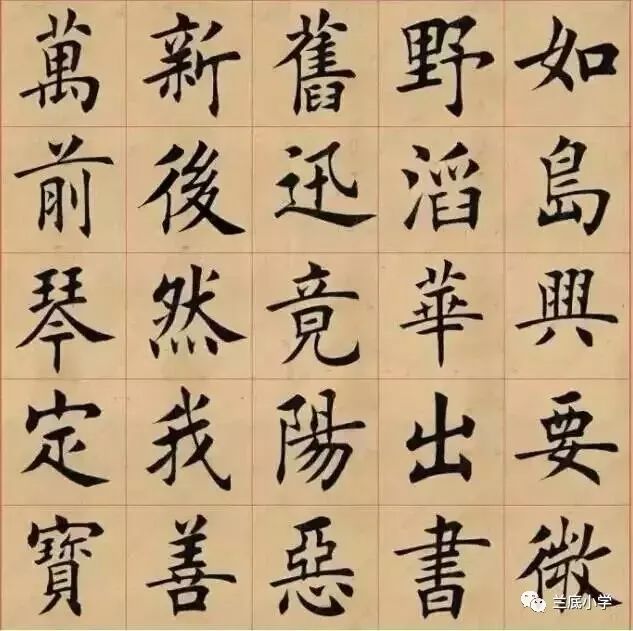 萬新舊野如
前後迅滔島
琴然竟華興
定我陽出要
寶善惡書微
兰底小学